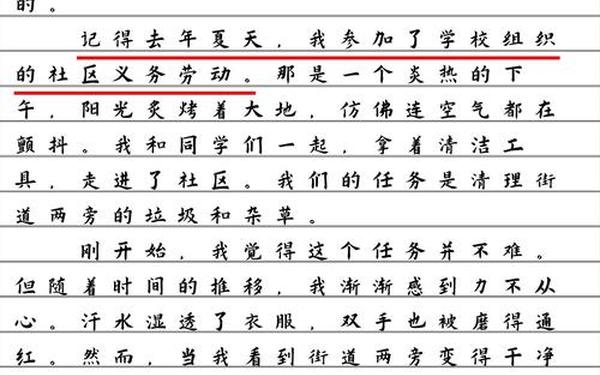 的。
记得去年夏天，我参加了学校组织
的社区义务劳动。那是一个炎热的下
午，阳光炙烤着大地，仿佛连空气都在
颤抖。我和同学们一起，拿着清洁工
具，走进了社区。我们的任务是清理街
道两旁的垃圾和杂草。
刚开始，我觉得这个任务并不难。
但随着时间的推移，我渐渐感到力不从
心。汗水湿透了衣服，双手也被磨得通
红。然而，当我看到街道两旁变得干净